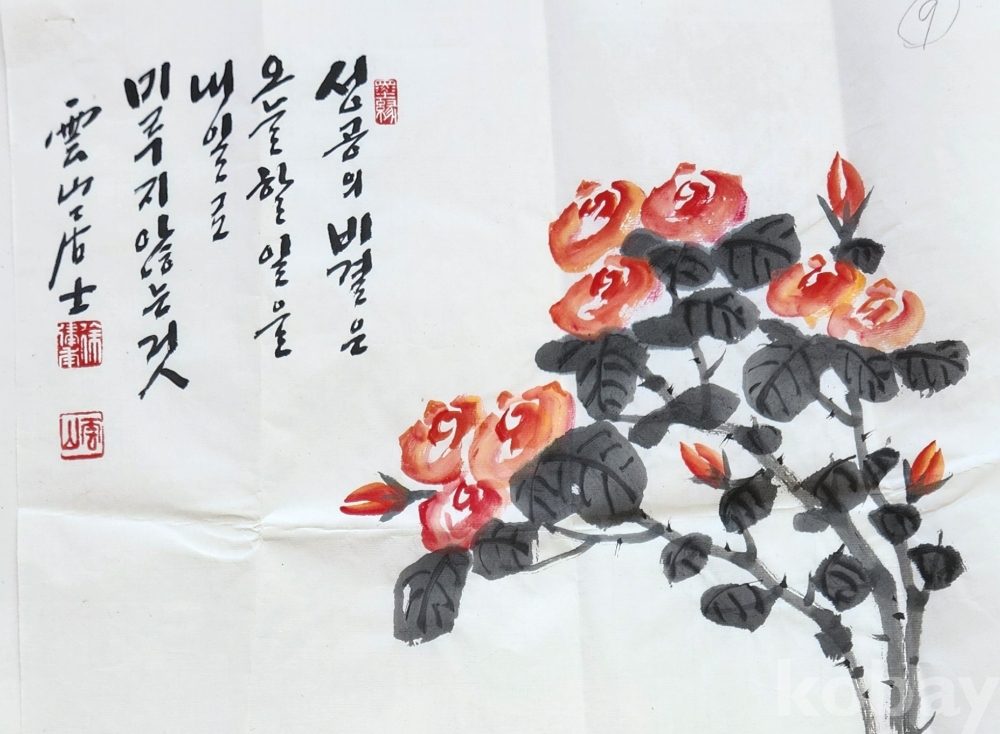 성공의 비결은
오늘 할 일을
내일로
미루지 않는 것
雲山居士
雲山
9
kobay